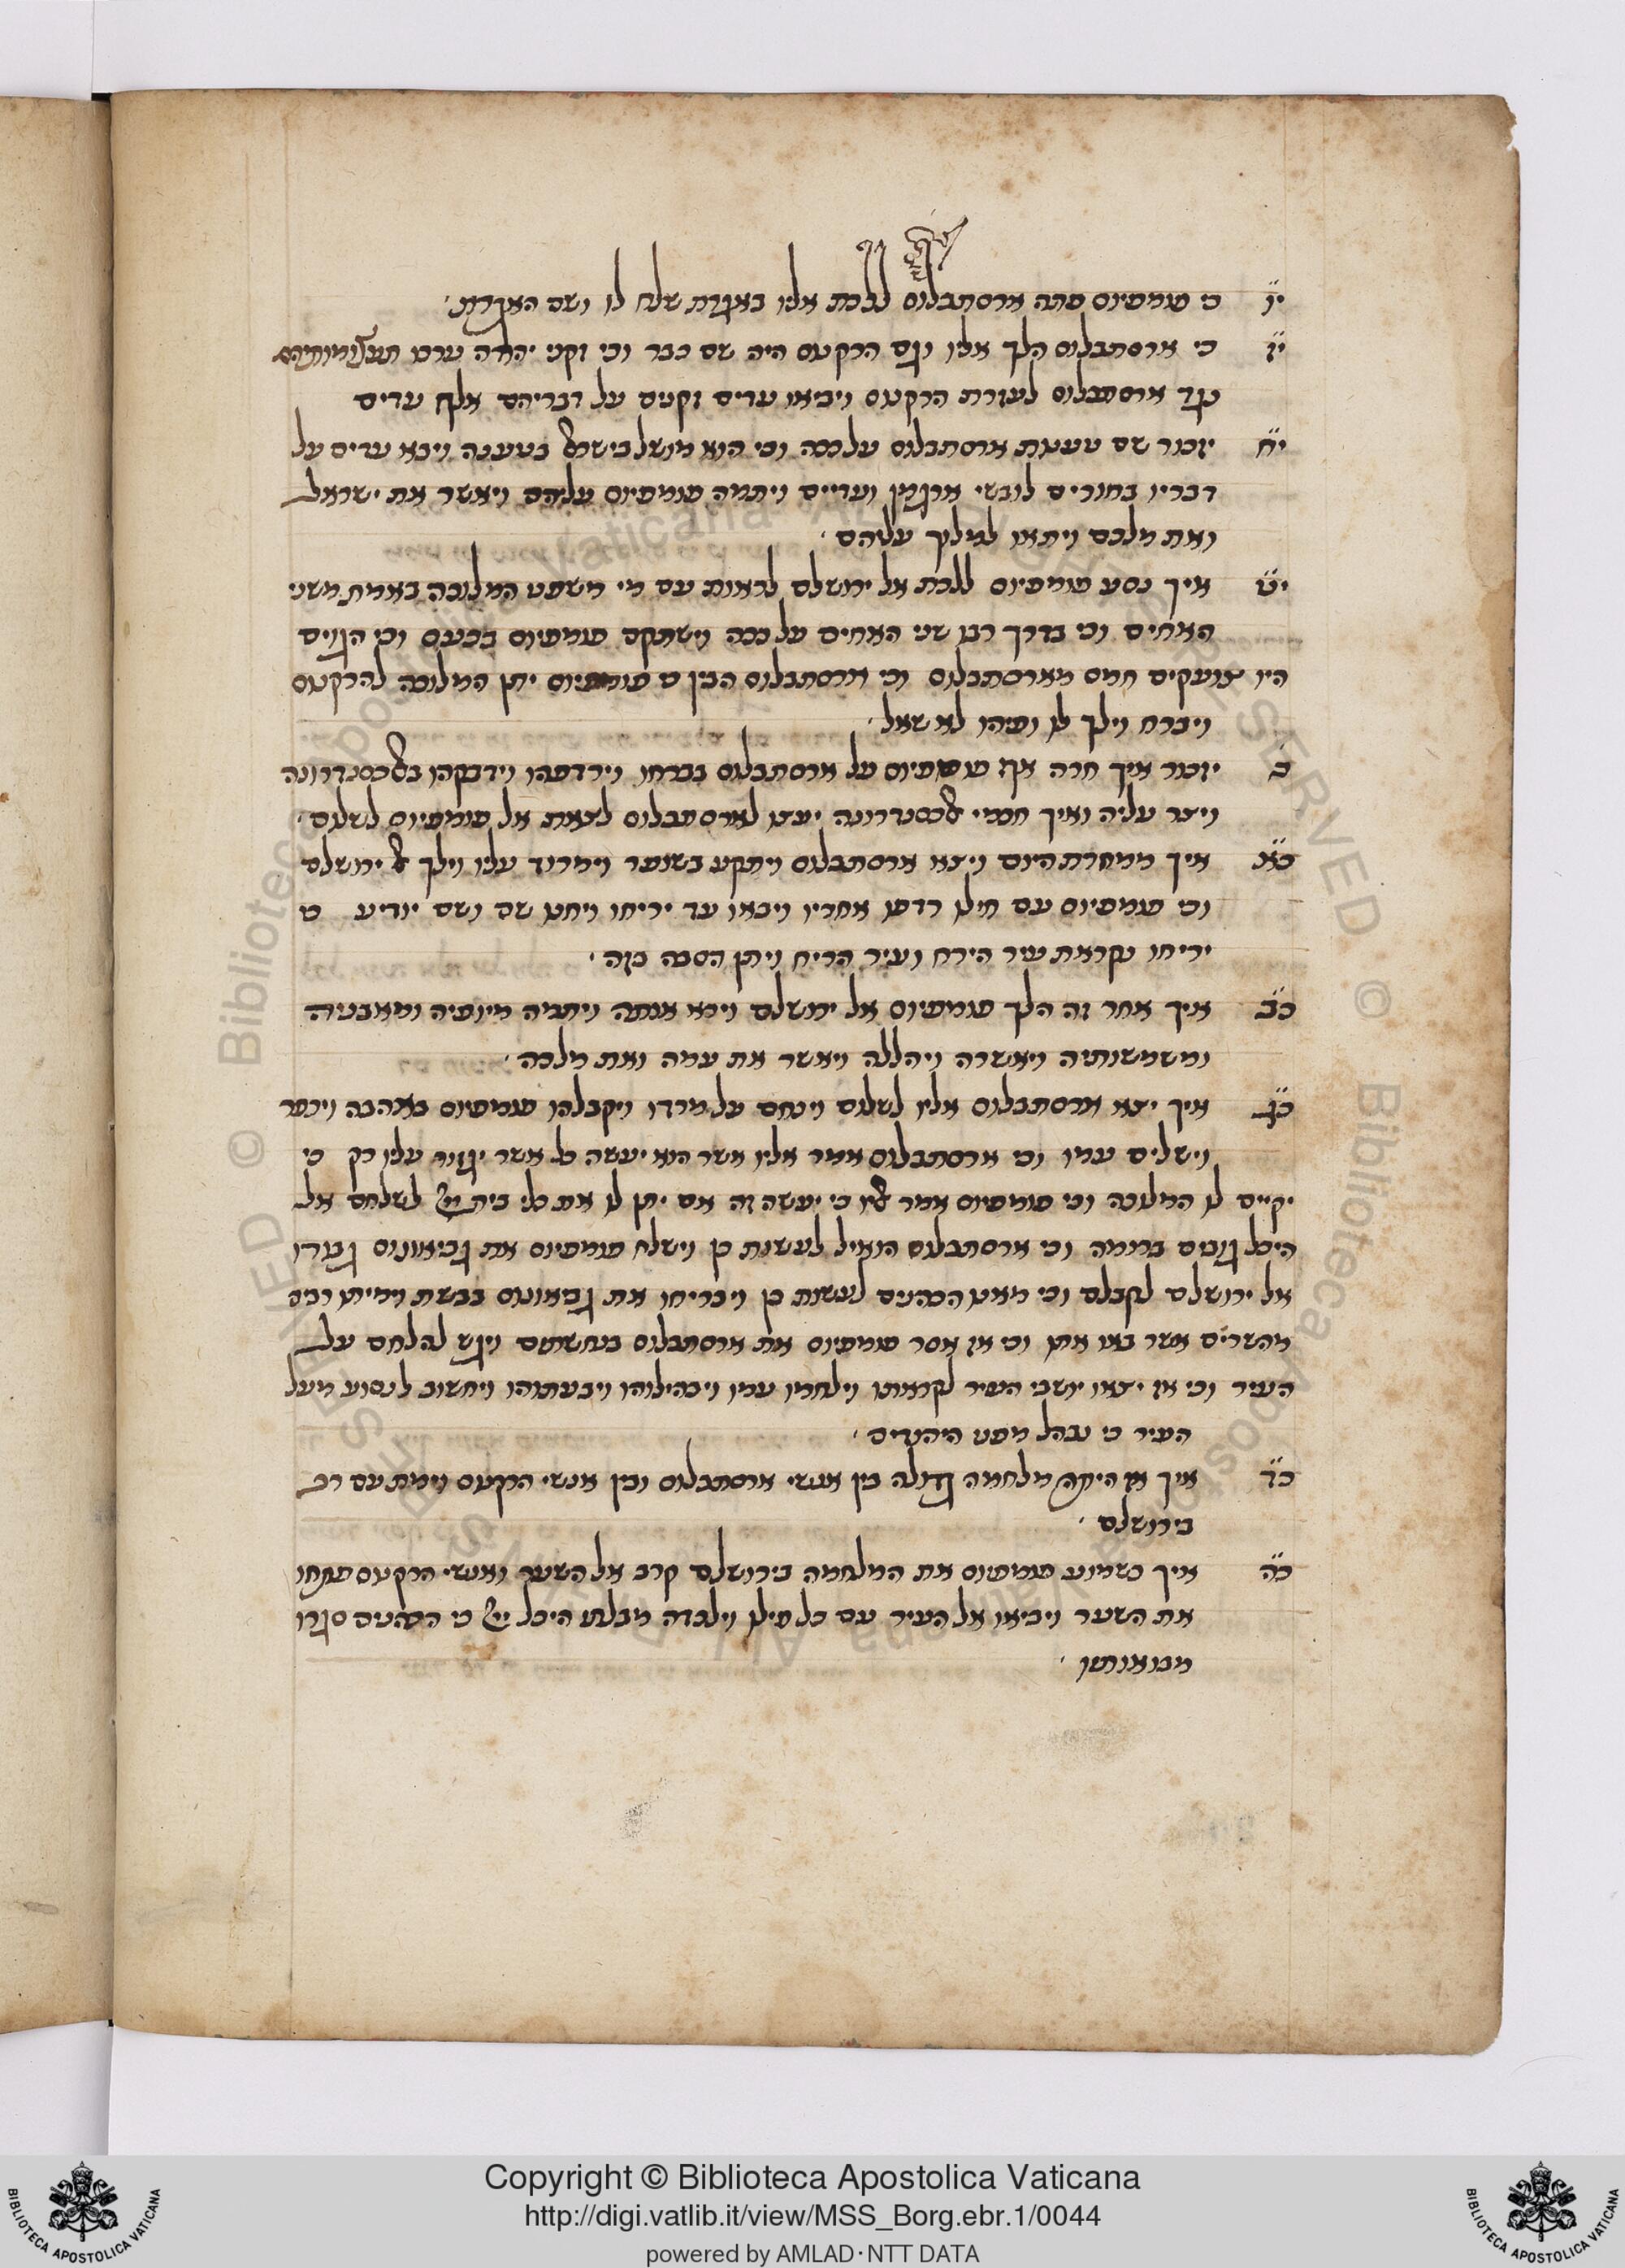 יו כי פומפיוס פתה ארסתבלוס ללכת אליו באגרת שלח לו ושם האגרת
יז כי ארסתבלוס הלך אליו וגם הרקנוס היה שם כבר וכי זקני יהודה ערכו תעצומותיהם
נגד ארסתבלוס לעזרת הרקנוס ויביאו עדים זקנים על דבריהם אלף עדים
יח יזכור שם טענת ארסתבלוס על ככה וכי הוא מושל בישראל בטענה ויבא עדים על
דבריו בחורים לובשי ארגמן ועדיים ויתמה פומפיוס עליהם ויאשר את ישראל
ואת מלכם ויתאו למלוך עליהם
יט איך נסע פומפיוס ללכת אל ירושלם לראות עם מי משפט המלוכה באמת משני
האחים וכי בדרך רבו שני האחים על ככה וישתקם פומפיוס בכעס וכי הגוים
היו צועקים חמס מארסתבלוס וכי ארסתבלוס הבין כי פומפיוס יתן המלוכה להרקנוס
ויברח וילך לו ופיהו לא שאל
כ יזכור איך חרה אף פומפיוס על ארסתבלוס בברחו וירדפהו וידבקהו באלכסנדרונה
ויצר עליה ואיך חכמי אלכסנדרונה יעצו לארסתבלוס לצאת אל פומפיוס לשלום
כא איך ממחרת היום ויצא ארסתבלוס ויתקע בשופר וימרוד עליו וילך אל ירושלם
וכי פומפיוס עם חילו רדפו אחריו ויבאו עד יריחו ויחנו שם ושם יודיע כי
יריחו נקראת עיר הירח ועיר הריח ויתן הסבה בזה
כב איך אחר זה הלך פומפיוס אל ירושלם ויבא אותה ויתמה מיופיה ומאבניה
ומשמשותיה ויאשרה ויהללה ויאשר את עמה ואת מלכה
כג איך יצא ארסתבלוס אליו לשלום וינחם על מרדו ויקבלהו פומפיוס באהבה ויכפר
וישלים עמו וכי ארסתבלוס אמר אליו אשר הוא יעשה כל אשר יגזור עליו רק כי
יקיים לו המלוכה וכי פומפיוס אמר אליו כי יעשה זה אם יתן לו את כלי בית ייי לשלחם אל
היכל גוביס ברומה וכי ארסתבלוס הואיל לעשות כן וישלח פומפיוס את גביאוניוס גבורו
אל ירושלם לקבלם וכי מאנו הכהנים לעשות כן ויבריחו את גביאוניוס בבשת וימיתו רבים
מהשרים אשר באו אתו וכי אז אסר פומפיוס את ארסתבלוס בנחשתים ויגש להלחם על
העיר וכי אז יצאו יושבי העיר לקראתו וילחמו עמו ויבהילוהו ויבעתוהו ויחשוב לנסוע מעל
העיר כי נבהל מפני היהודים
כד איך אז היתה מלחמה גדולה בין אנשי ארסתבלוס ובין אנשי הרקנוס וימת עם רב
בירושלם
כה איך כשמוע פומפיוס את המלחמה בירושלם קרב אל השער ואנשי הרקנוס פתחו
את השער ויביאו אל העיר עם כל חילו וילכדה מבלתי היכל ייי כי הכהנים סגרו
מבואותיו
Copyright © Biblioteca Apostolica Vaticana
http://digi.vatlib.it/view/MSS_Borg.ebr.1/0044
powered by AMLAD·NTT DATA